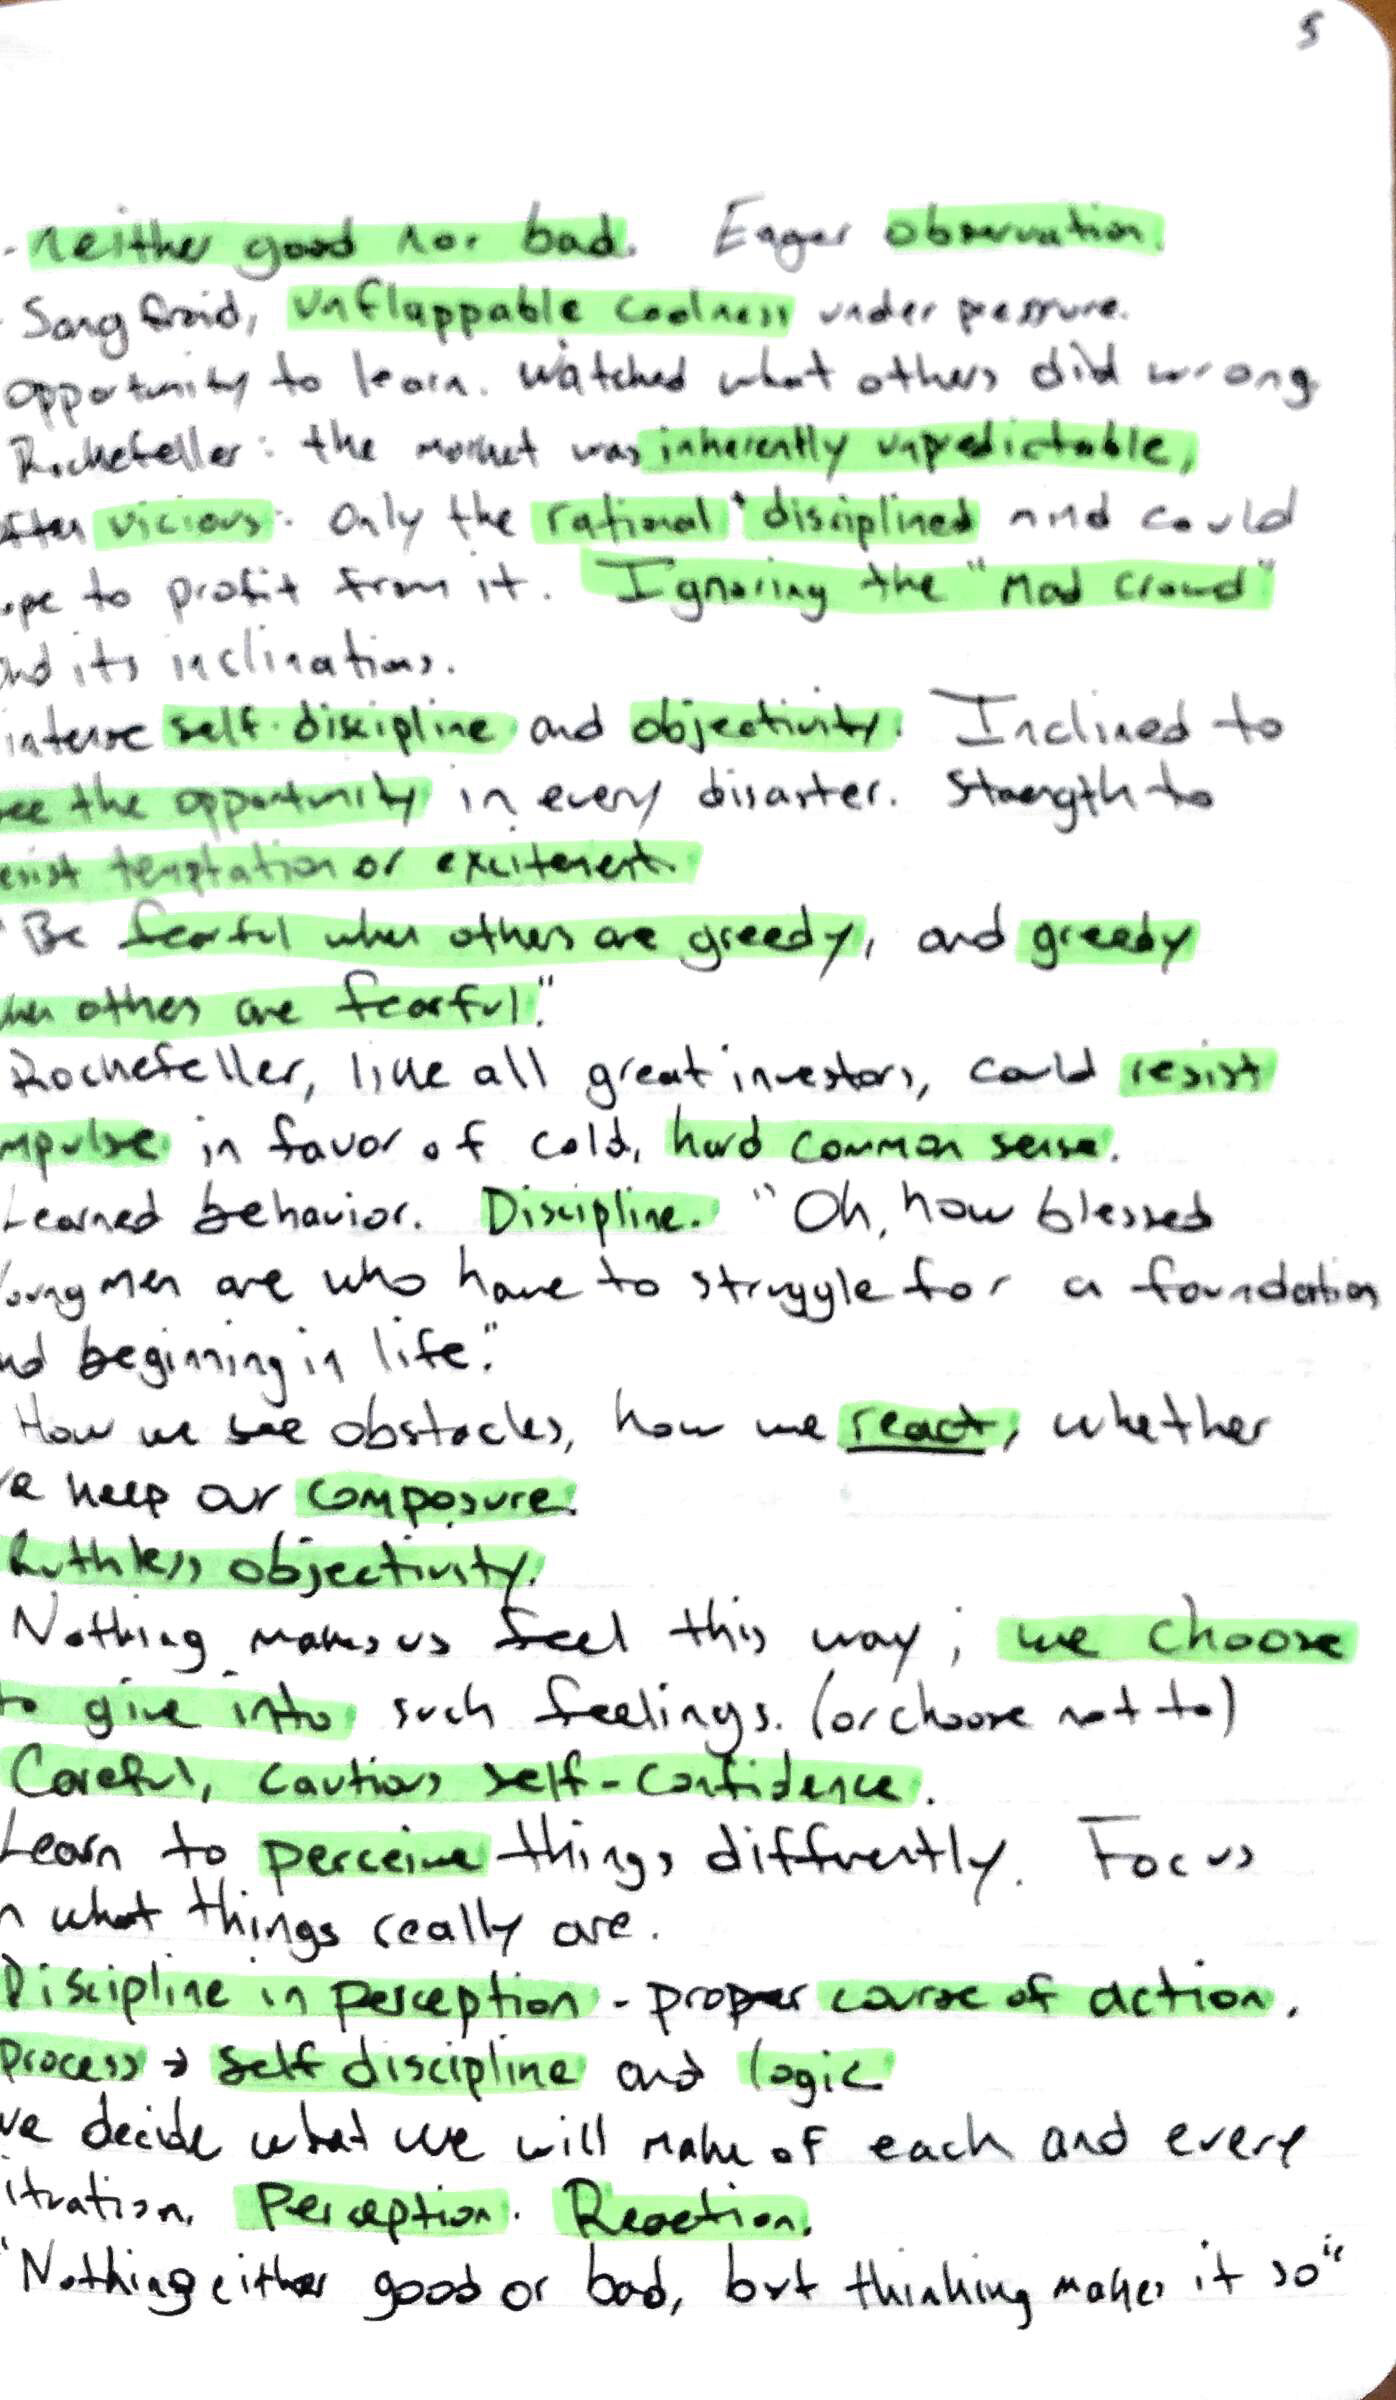 5
- neither good nor bad. Eager observation.
- Sangfroid, unflappable coolness under pressure.
opportunity to learn. Watched what others did wrong
Rockefeller: the market was inherently unpredictable,
often vicious: only the rational + disciplined mind could
ope to profit from it. Ignoring the "mad crowd"
and its inclinations.
intense self-discipline and objectivity. Inclined to
see the opportunity in every disaster. Strength to
esist temptation or excitement.
"Be fearful when others are greedy, and greedy
when others are fearful."
Rockefeller, like all great investors, could resist
mpulse in favor of cold, hard common sense.
Learned behavior. Discipline. "Oh, how blessed
young men are who have to struggle for a foundation
nd beginning in life."
How we see obstacles, how we react, whether
e keep our composure.
Ruthless objectivity.
Nothing makes us feel this way; we choose
to give into such feelings. (or choose not to)
Careful, cautious self-confidence.
Learn to perceive things differently. Focus
n what things really are.
Discipline in perception - proper course of action.
Process → self discipline and logic
we decide what we will make of each and every
ituation. Perception. Reaction.
"Nothing either good or bad, but thinking makes it so"